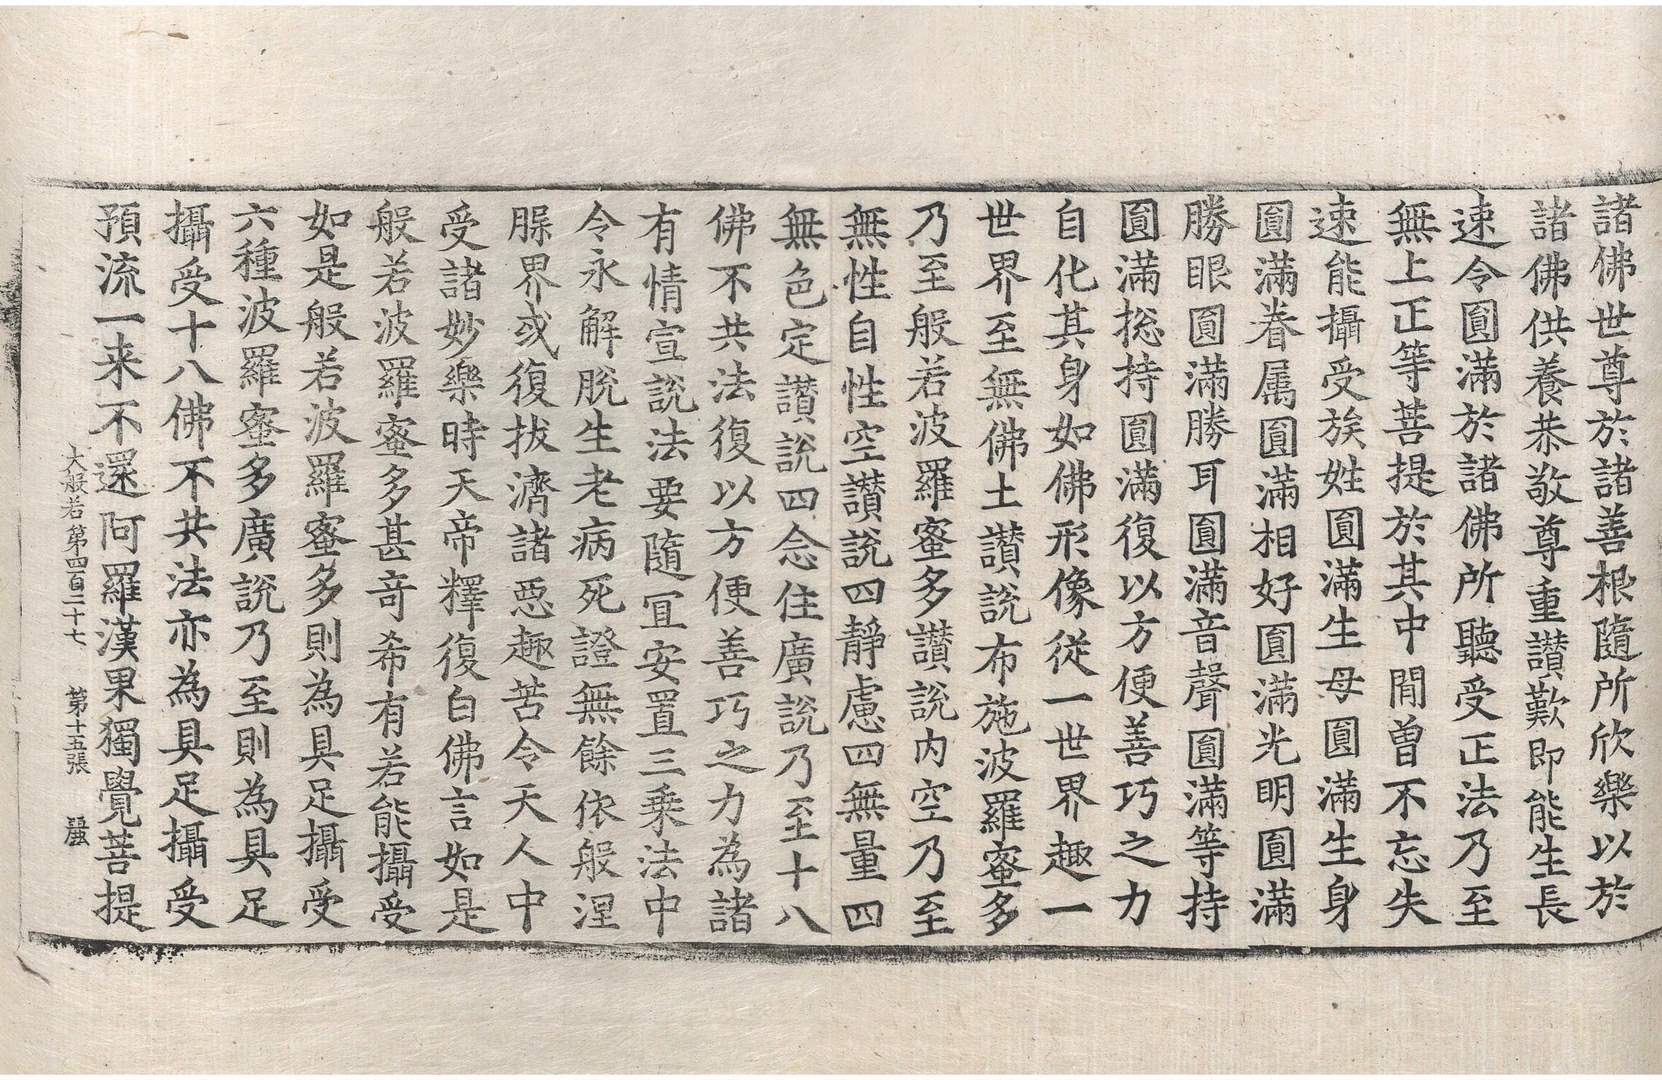 諸佛世尊於諸善根隨所欣樂以於
諸佛供養恭敬尊重讃歎即能生長
速令圓滿於諸佛所聽受正法乃至
無上正等菩提於其中閒曾不忘失
速能攝受族姓圓滿生母圓滿生身
圓滿眷属圓滿相好圓滿光明圓滿
勝眼圓滿勝耳圓滿音聲圓滿等持
圓滿揔持圓滿復以方便善巧之力
自化其身如佛形像從一世界趣一
世界至無佛土讃說布施波羅蜜多
乃至般若波羅蜜多讃說内空乃至
無性自性空讃說四靜慮四無量四
無色定讃說四念住廣說乃至十八
佛不共法復以方便善巧之力為諸
有情宣說法要隨宜安置三乗法中
令永解脫生老病死證無餘依般涅
臊界或復拔濟諸惡趣苦令天人中
受諸妙樂時天帝釋復白佛言如是
般若波羅蜜多甚奇希有若能攝受
如是般若波羅蜜多則為具足攝受
六種波羅蜜多廣說乃至則為具足
攝受十八佛不共法亦為具足攝受
預流一来不還阿羅漢果獨覺菩提
大般若第四百二十七 第十五張